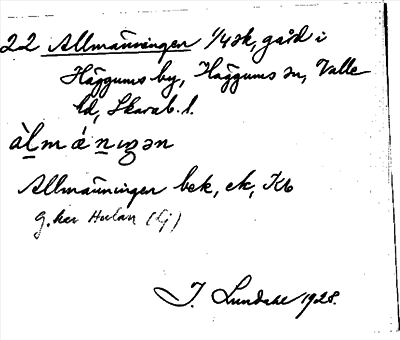 22 Allmänningen 1/4 ek, gård i
Häggums by, Häggums sn, Valle
hd, Skarab. l.
àlmǽniŋən
Allmänningen bek, ek, Kb
g. har Hulan (Lj)
J. Lundahl 1928.